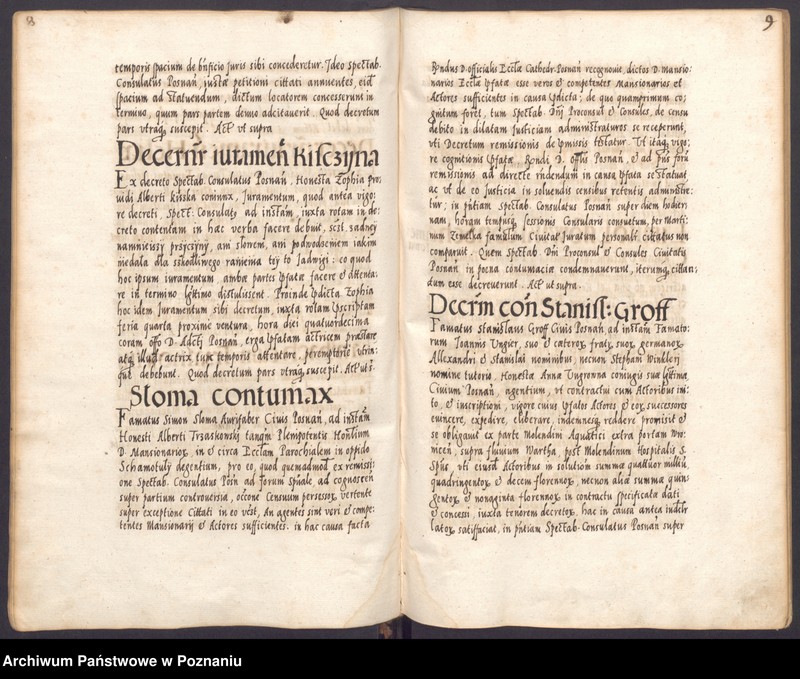 8
temporis spacium de bñficio juris sibi concederetur. Ideo spectab.
Consulatus Posnań, juxta petitioni citati annuentes, eid
spacium ad statuendum, dictum locatorem concesserunt in
termino, quum pars partem denuo adcitauerit. Quod decretum
pars utraq suscepit. Act ut supra
Decernr iuramen Kisczijna
Ex decreto Spectab. Consulatus Posnań, Honesta Zophia pro:
uidi Alberti Kiska coniunx, Juramentum, quod antea vigo:
re decreti, Spect: Consulat, ad instam, iuxta rotam in de:
creto contentam in hac verba facere debuit, scil. sadnej
namnieiszy przyczyny, ani slovem, ani podwodzeniem iakim
niedala dla szkodliwego ranienia tej to Jadwigi: co quod
hoc ipsum iuramentum, ambæ partes ipsatæ facere et attenta:
re in termino legitimo distulissent. Proinde ipsdicta Zophia
hoc idem Juramentum sibi decretum, iuxta rotam ipscriptam
feria quarta proxime ventura, hora diei quatuordecima
coram offo D. Adctj Posnań, erga ipsatam actricem præstare
atq illud actrix tum temporis attentare, peremptorie utrin:
que debebunt. Quod decretum pars utraq suscepit. Act ut s.
Sloma contumax
Famatus Simon Sloma Aurifaber Civis Posnań, ad instam
Honesti Alberti Trzaskonskj tanqm Plenipotentis Honlium
D. Mansionariorx, in et circa Ecclam Parochialem in oppido
Schamotuly degentium, pro eo, quod quemadmod ex remissi:
one Spectab. Consulatus Posn ad forum Spuale, ad cognoscen
super partium controversia, occone Censuum persessor, vertente
super exceptione Citati in eo vest, An agentes sint veri et compe:
tentes Mansionarij et Actores sufficientes. in hac causa facta
9
Rndus D. officialis Ecclæ Cathedr. Posnań recognouit, dictos D. Mansio:
narios Ecclæ ipsatæ esse veros et competentes Mansionarios et
Actores sufficientes in causa ipsdicta; de quo quamprimum co:
gnitum foret, tum Spectab. Dnj Proconsul et Consules, de censu
debito in dilatam Justiciam administraturos se receperunt,
uti Decretum remissionis de ipmissis testatur. Ut itaq vigo:
re cognitionis ipsatæ Rendi D. offlis Posnań, et ad pns forū
remissionis ad directe rndendum in causa ipsata se statuat,
ac ut de eo Justicia in soluendis censibus retentis administre:
tur; in pntiam Spectab. Consulatus Posnań super diem hodier:
nam, horam tempusq sessionis Consularis consuetum, per Marti:
num Zemelka famulum Civitat Juratum personalr citatus non
comparuit. Quem Spectab. Dnj Proconsul et Consules Civitatis
Posnań in poena contumaciæ condemnauerunt, iterumq citan:
dum esse decreuerunt. Act ut supra.
Decrm con Stanisl: Groff
Famatus Stanislaus Groff Civis Posnań, ad instam Famato:
rum Joannis Ungier, suo et cæterorx, fratrx, suorx, germanorx
Allexandri et Stanislai nominibus, necnon Stephani Winkler
nomine tutorio, Honestæ Annæ Ungronna coniugis suæ lgtimæ,
Civium Posnań, agentium, ut contractui cum Actoribus ini:
to, et inscriptioni, vigore cuius ipsatos Actores et eorx successores
euincere, expedire, eliberare, indemnesq reddere promisit et
se obligauit ex parte Molendini Aquatici extra portam Wro:
niecen, supra fluvium Wartha, post Molendinum Hospitalis S.
Spus, uti eiusd Actoribus in solutiōn summæ quattuor milliū,
quadringentorx, et decem florenorx, necnon alia summa quin:
gentorx, et nonaginta florenorx in contractu specificata dati
et concessi, iuxta tenorem decretorx, hac in causa antea indeler
latorx, satisfaciat, in pntiam Spectab. Consulatus Posnań super
Archiwum Państwowe w Poznaniu